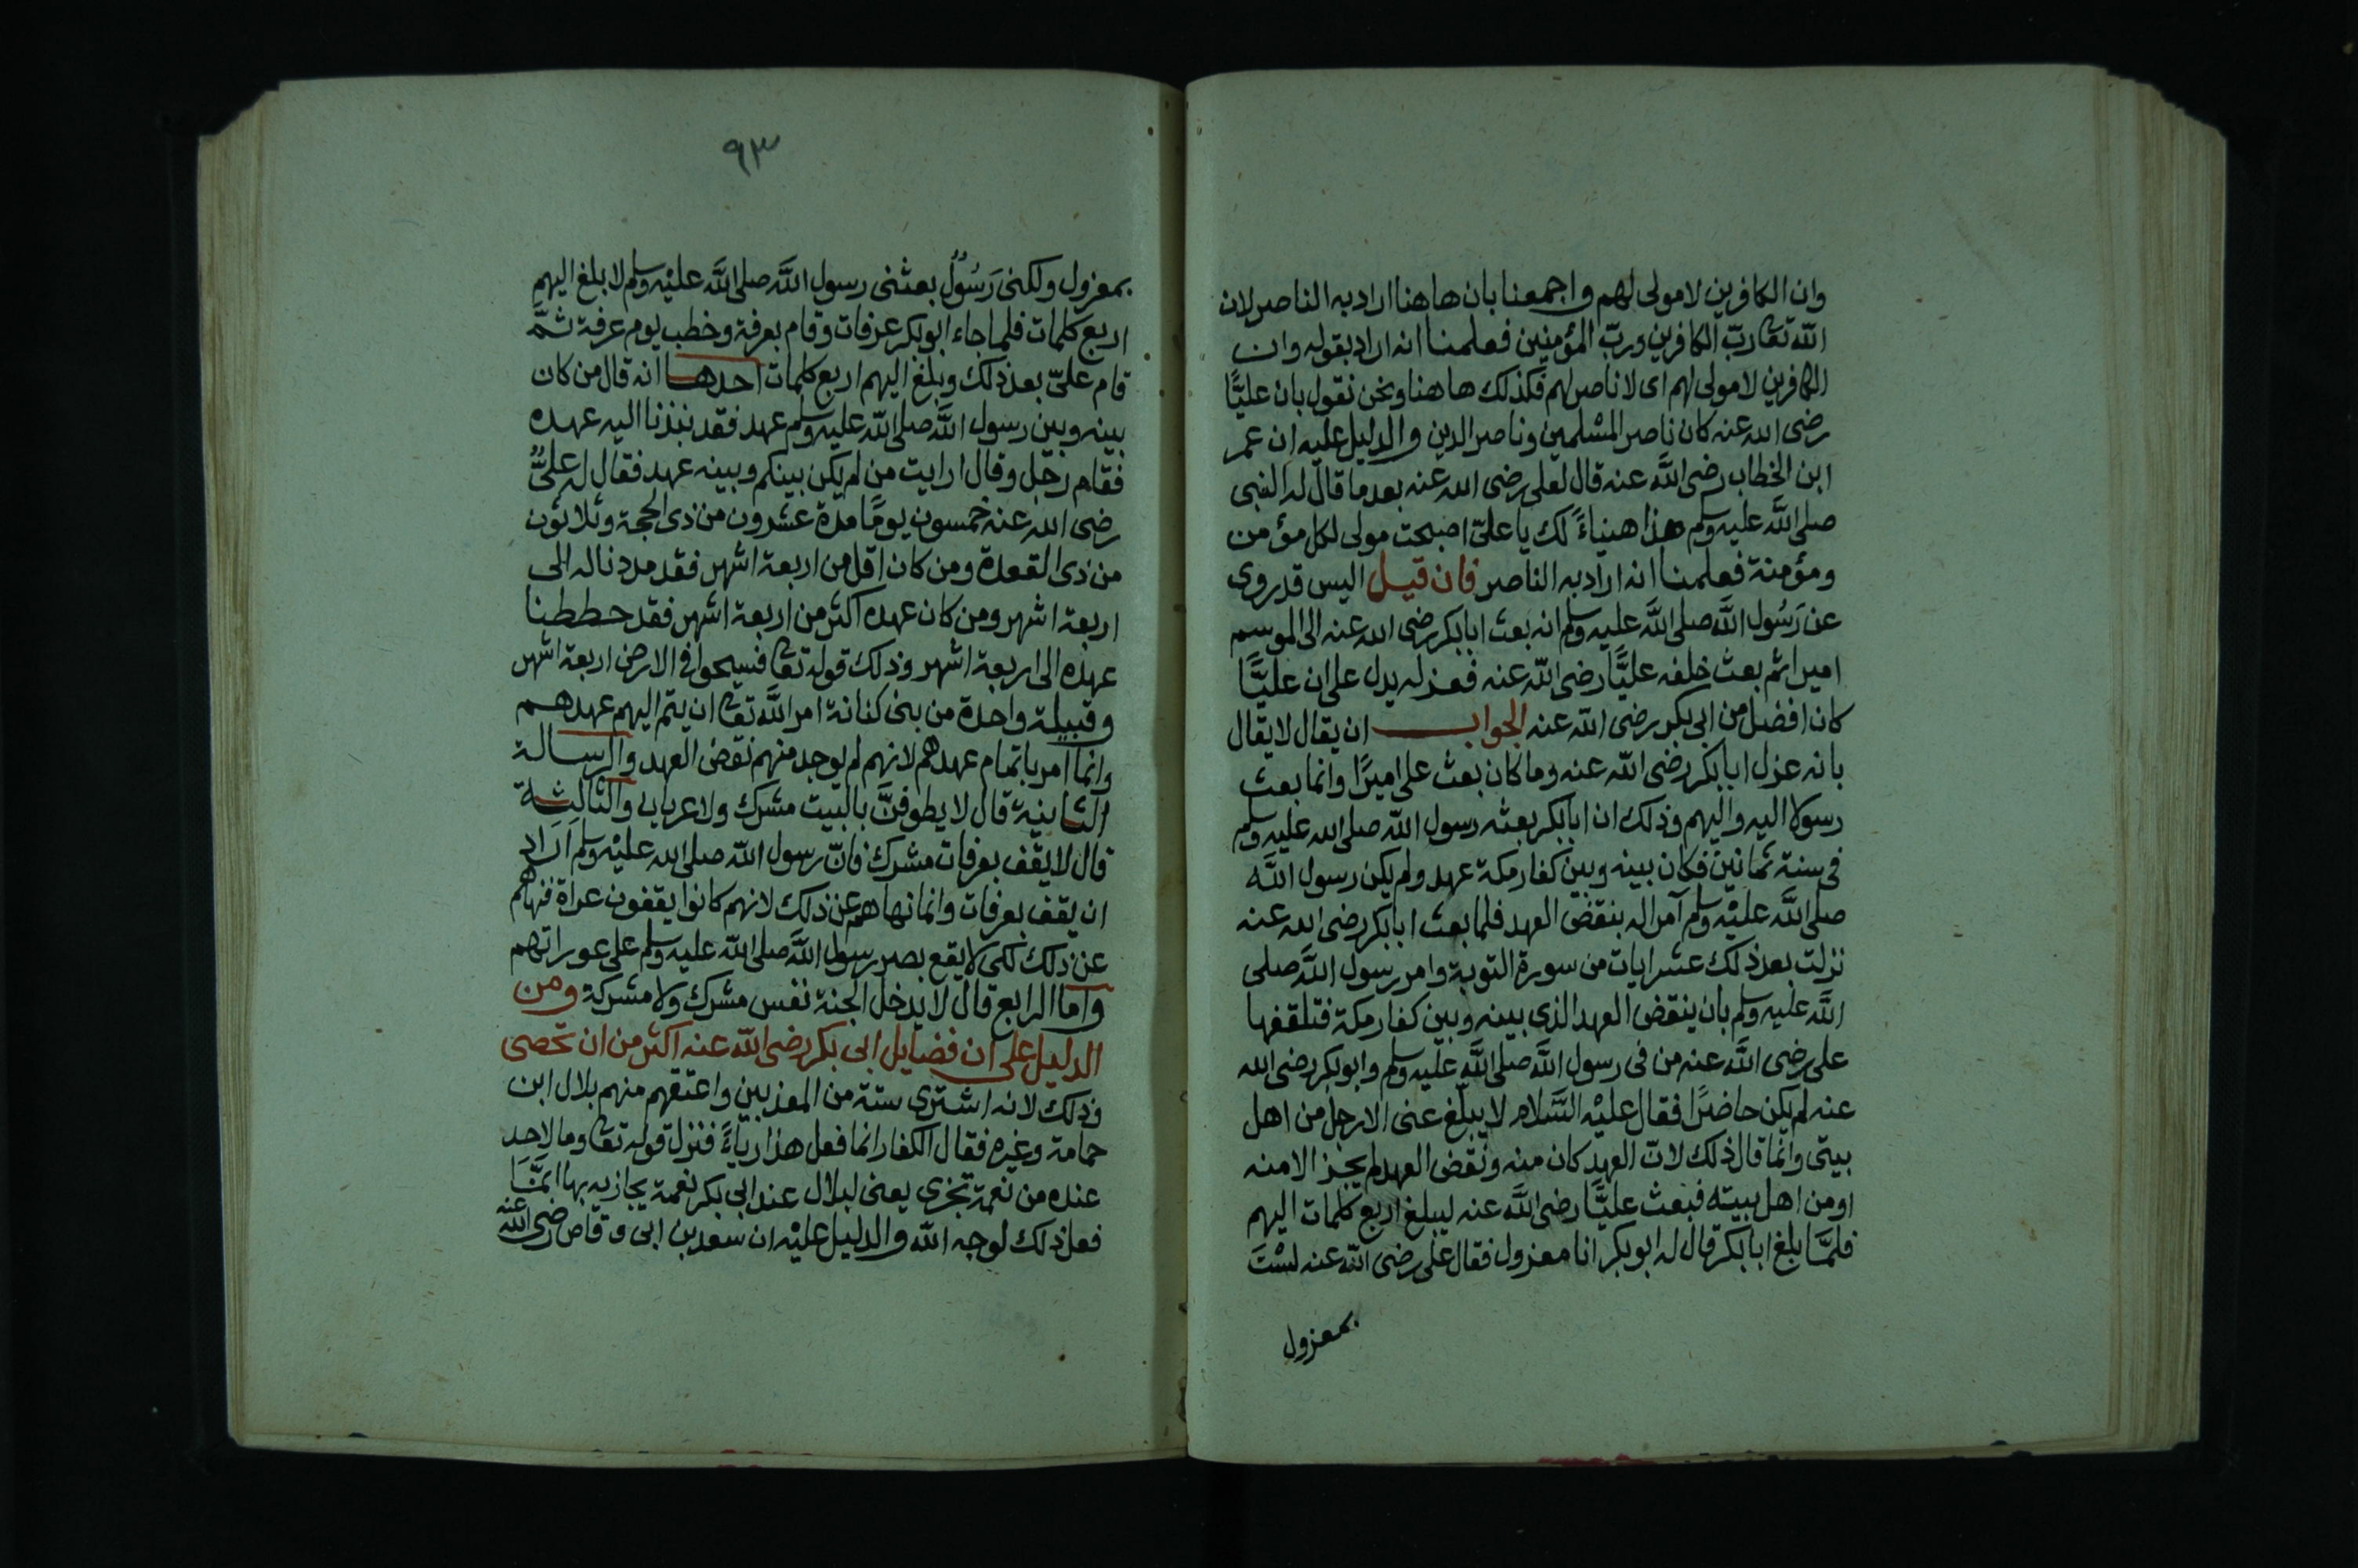 وان الكافرين لا مولى لهم واجمعنا بان هاهنا اراد به الناصر لان
الله تعا ربّ الكافرين وربّ المؤمنين فعلمنا انه اراد بقوله وان
الكافرين لا مولى لهم اى لا ناصر لهم فكذلك هاهنا ونحن نقول بان عليًّا
رضى الله عنه كان ناصر المسلمين وناصر الدين والدليل عليه ان عمر
ابن الخطاب رضى الله عنه قال لعلى رضى الله عنه بعد ما قال له النبى
صلى الله عليه وسلم هذا هنياءً لك يا علىّ اصبحت مولى لكل مؤمن
ومؤمنة فعلمنا انه اراد به الناصر فان قيل اليس قد روى
عن رَسُول الله صلى الله عليه وسلم انه بعث ابابكر رضى الله عنه الى الموسم
اميرا ثم بعث خلفه عليًّا رضى الله عنه فعزله يدل على ان عليًّا
كان افضل من ابى بكر رضى الله عنه الجواب ان يقال لا يقال
بانه عزل ابابكر رضى الله عنه وما كان بعث على اميرًا وانما بعث
رسولا اليه واليهم وذلك ان ابابكر بعثه رسول الله صلى الله عليه وسلم
فى سنة ثمانين فكان بينه وبين كفار مكة عهد ولم يكن رسول الله
صلى الله عليْه وسلم آمرا له بنقض العهد فلما بعث ابابكر رضى الله عنه
نزلت بعد ذلك عشر ايات من سورة التوبة وامر رسول الله صلى
الله عليه وسلم بان ينقض العهد الذى بينه وبين كفار مكة فتلقفها
على رضى الله عنه من فى رسول الله صلى الله عليه وسلم وابوبكر رضى الله
عنه لم يكن حاضرًا فقال عليْه السَّلام لا يبلّغ عنى الا رجل من اهل
بيتى وانما قال ذلك لانّ العهد كان منه ونقض العهد لم يجز الا منه
او من اهل بيته فبعث عليًّا رضى الله عنه ليبلغ اربع كلمات اليهم
فلمَّا بلغ ابابكر قال له ابوبكر انا معزول فقال على رضى الله عنه لسْتَ
بمعزول
٩٣
بمعزول ولكنى رَسُولٌ بعثنى رسول الله صلى الله عليْه وسلم لا بلغ اليهم
اربع كلمات فلما جاء ابوبكر عرفات وقام بعرفة وخطب يوم عرفة ثمّ
قام علىّ بعد ذلك وبلغ اليهم اربع كلمات احدها انه قال من كان
بينه وبين رسول الله صلى الله عليه وسلم عهد فقد نبذنا اليه عهده
فقام رجل وقال ارايت من لم يكن بينكم وبينه عهد فقال له علىٌّ
رضى الله عنه خمسون يومًا مدة عشرون من ذى الحجة وثلاثون
من ذى القعدة ومن كان اقل من اربعة اشهر فقد مددنا له الى
اربعة اشهر ومن كان عهده اكثر من اربعة اشهر فقد حططنا
عهده الى اربعة اشهر وذلك قوله تعا فسيحوا فى الارض اربعة اشهر
وقبيلة واحدة من بنى كنانة امر الله تعا ان يتم اليهم عهدهم
وانما امر باتمام عهدهم لانهم لم يوجد منهم نقض العهد والرسالة
الثانية قال لا يطوفنَّ بالبيت مشرك ولا عريان والثالثة
قال لا يقف بعرفات مشرك فانّ رسول الله صلى الله عليْه وسلم اَرَادَ
ان يقف بعرفات وانما نهاهم عن ذلك لانهم كانوا يقفون عراة فنهاهم
عن ذلك لكى لا يقع بصر رسول الله صلى الله عليه وسلم على عوراتهم
واما الرابع قال لا يدخل الجنة نفس مشرك ولا مشركة ومن
الدليل على ان فضايل ابى بكر رضى الله عنه اكثر من ان تحصى
وذلك لانه اشترى ستة من المعذبين واعتقهم منهم بلال ابن
حمامة وغيره فقال الكفار انما فعل هذا رياءً فنزل قوله تعا وما لاحد
عنده من نعمة تجزى يعنى لبلال عند ابى بكر نعمة يجازيه بها انمَّا
فعل ذلك لوجه الله والدليل عليْه ان سعد بن ابى وقاص رضى الله عنه